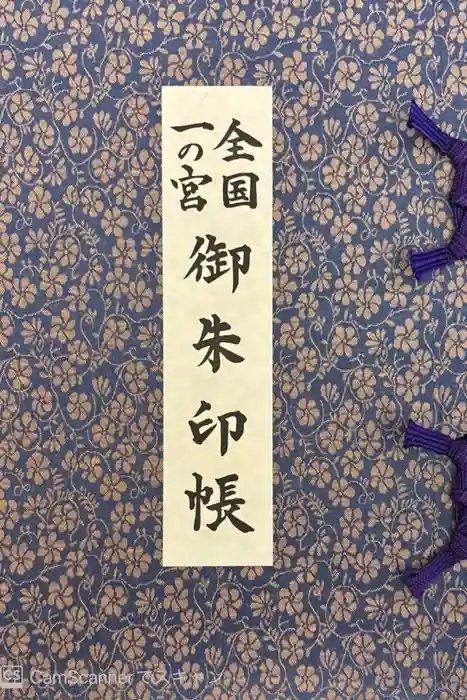 全国
一の宮
御朱印帳
CS CamScannerでスキャン